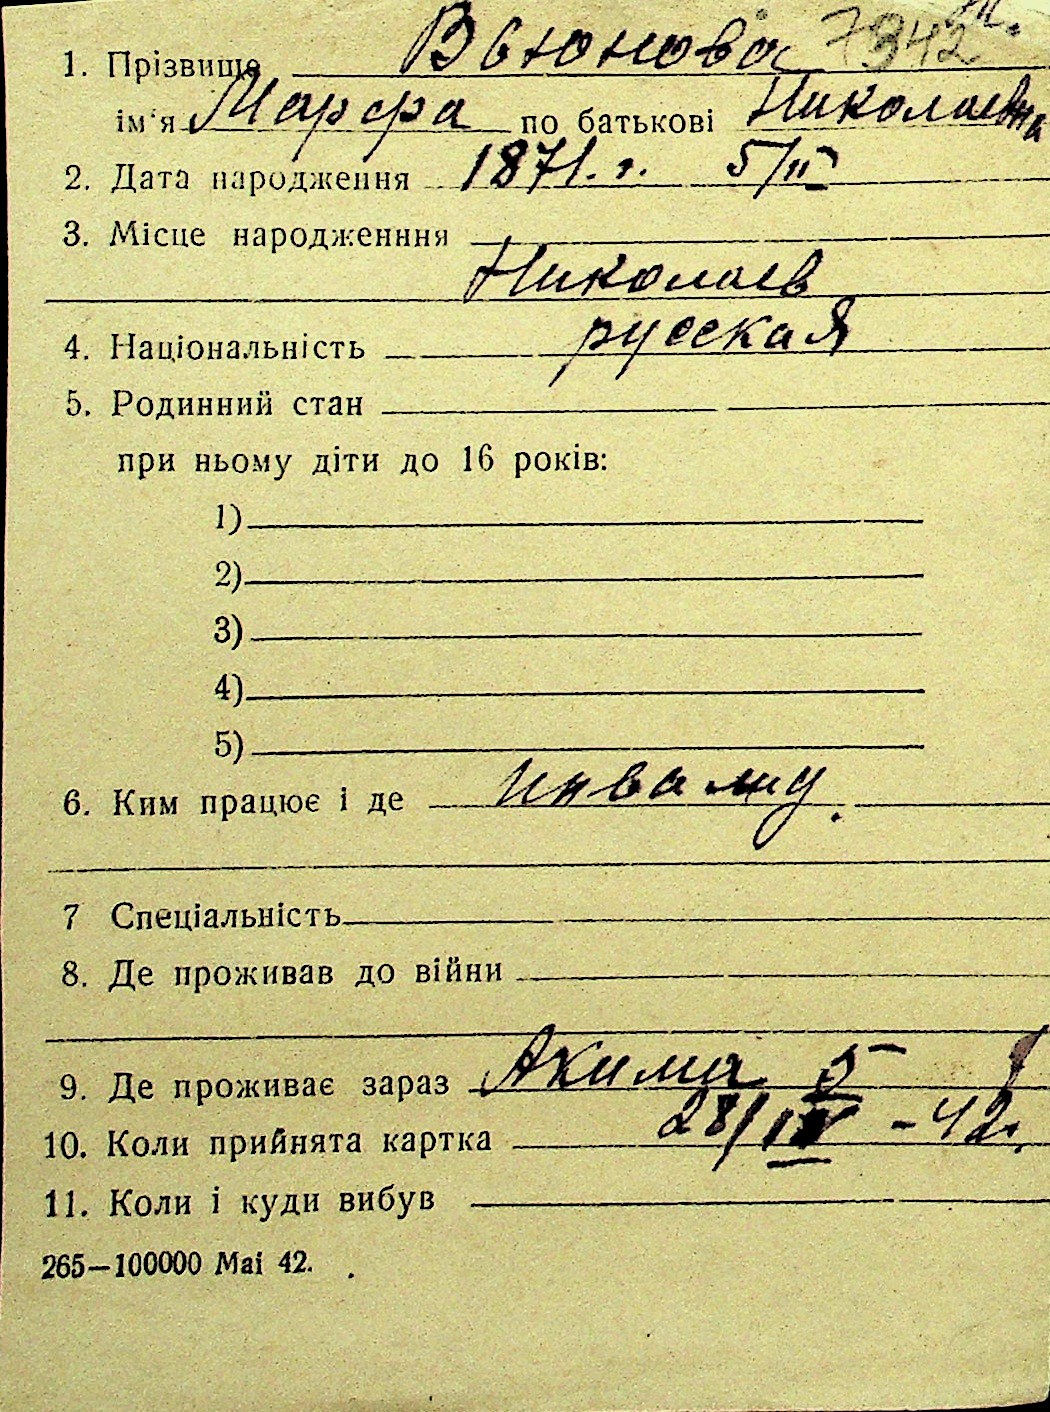 1. Прізвище Вьюнова 7942
ім'я Марфа по батькові Николаевна
2. Дата народження 1871. г. 5/II
3. Місце народженння
Николаев
4. Національність русская
5. Родинний стан
при ньому діти до 16 років:
1)
2)
3)
4)
5)
6. Ким працює і де инвалид.
7 Спеціальність
8. Де проживав до війни
9. Де проживає зараз Акима 5
10. Коли прийнята картка 28/IV - 42.
11. Коли і куди вибув
265—100000 Mai 42.